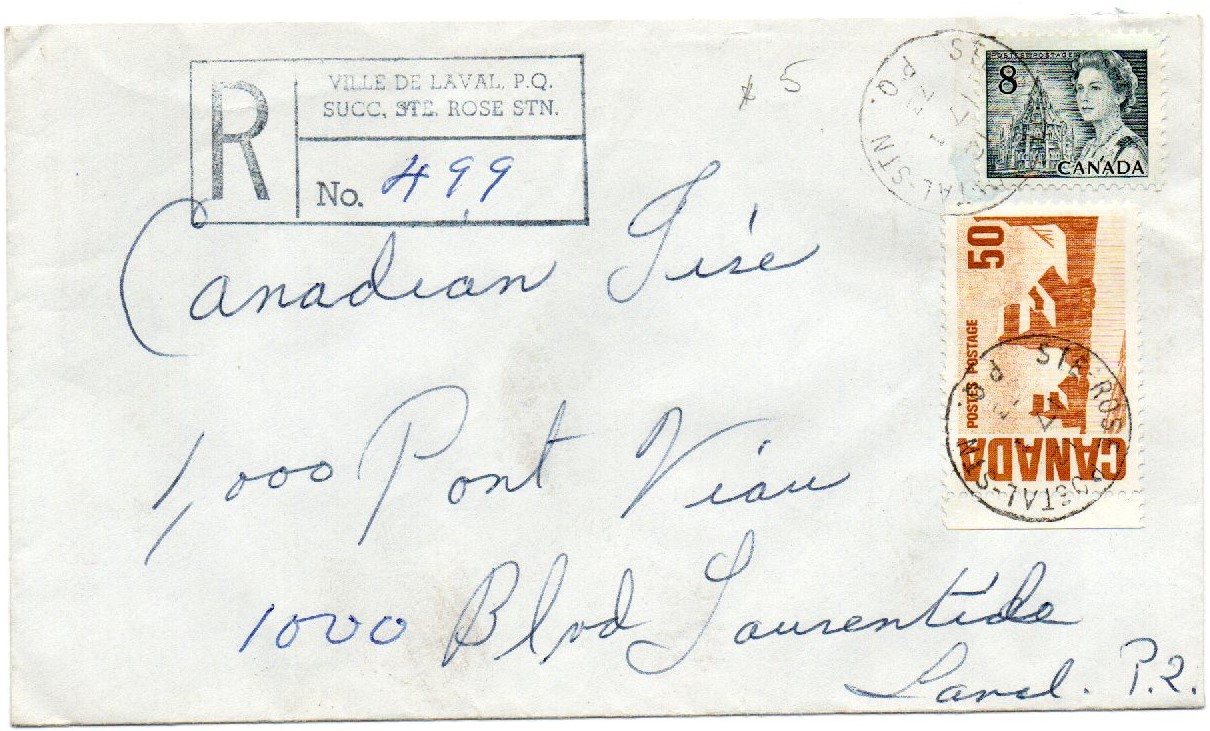 R
VILLE DE LAVAL, P.Q.
SUCC, STE. ROSE STN.
No. 499
5
8
POSTES POSTAGE
CANADA
STE-ROSE POSTAL-STN P.Q.
50
POSTES POSTAGE
CANADA
STE-ROSE POSTAL-STN P.Q.
Canadian Tire
1,000 Pont Viau
1000 Blvd Laurentide
Laval. P.Q.